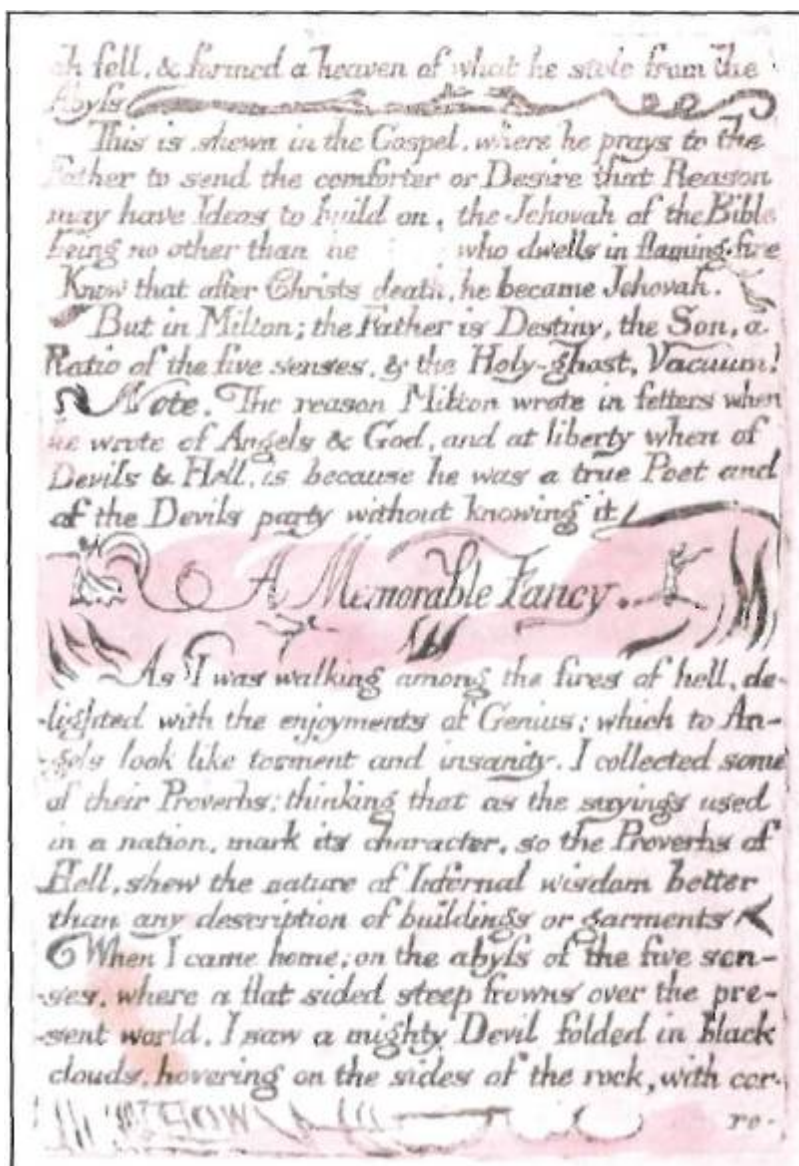 ah fell, & formed a heaven of what he stole from the
Abyss
This is shewn in the Gospel, where he prays to the
Father to send the comforter or Desire that Reason
may have Ideas to build on, the Jehovah of the Bible
being no other than he who dwells in flaming fire
Know that after Christs death, he became Jehovah.
But in Milton; the Father is Destiny, the Son, a
Ratio of the five senses, & the Holy-ghost, Vacuum!
Note. The reason Milton wrote in fetters when
he wrote of Angels & God, and at liberty when of
Devils & Hell, is because he was a true Poet and
of the Devils party without knowing it
A Memorable Fancy.
As I was walking among the fires of hell, de-
-lighted with the enjoyments of Genius; which to An-
-gels look like torment and insanity. I collected some
of their Proverbs: thinking that as the sayings used
in a nation, mark its character, so the Proverbs of
Hell, shew the nature of Infernal wisdom better
than any description of buildings or garments
When I came home; on the abyss of the five sen-
-ses, where a flat sided steep frowns over the pre-
-sent world. I saw a mighty Devil folded in black
clouds, hovering on the sides of the rock, with cor-
ro-